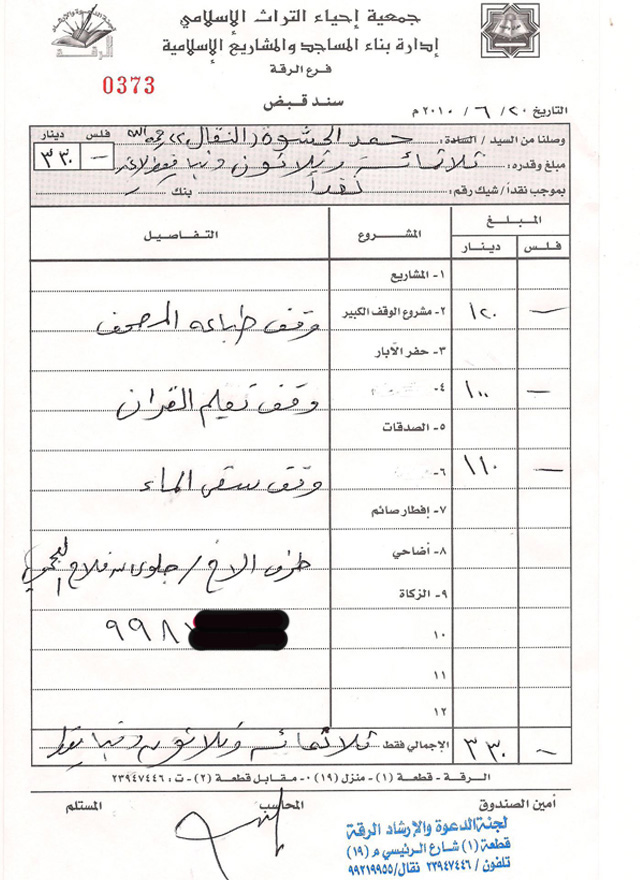 جمعية إحياء التراث الإسلامي
إدارة بناء المساجد والمشاريع الإسلامية
فرع الرقة
سند قبض
0373
التاريخ ٢٠ / ٦ / ٢٠١٠م
وصلنا من السيد / السادة: حمد الجشوة (النقال
دينار فلس
٣٣٠ –
مبلغ وقدره: ثلاثمائة وثلاثون دينار فقط لاغير
بموجب نقداً / شيك رقم: نقداً بنك
المبلغ المشروع التفاصيل
فلس دينار
١- المشاريع
– ١٢٠ ٢- مشروع الوقف الكبير وقف طباعه المصحف
٣- حفر الآبار
– ١٠٠ ٤- وقف تعليم القران
٥- الصدقات
– ١١٠ ٦- وقف سقى الماء
٧- إفطار صائم
٨- أضاحي طرف الاخ / جلوى فلاح
٩- الزكاة
١٠ ٩٩٨
١١
١٢
– ٣٣٠ الإجمالي فقط ثلاثمائه وثلاثون دينار فقط
الرقة - قطعة (١) - منزل (١٩) - مقابل قطعة (٢) - ت: ٢٣٩٤٧٤٤٦
أمين الصندوق المحاسب المستلم
لجنة الدعوة والإرشاد الرقة
قطعة (١) شارع الرئيسي م (١٩)
تلفون / ٢٣٩٤٧٤٤٦ نقال/ ٩٩٢١٩٩٥٥